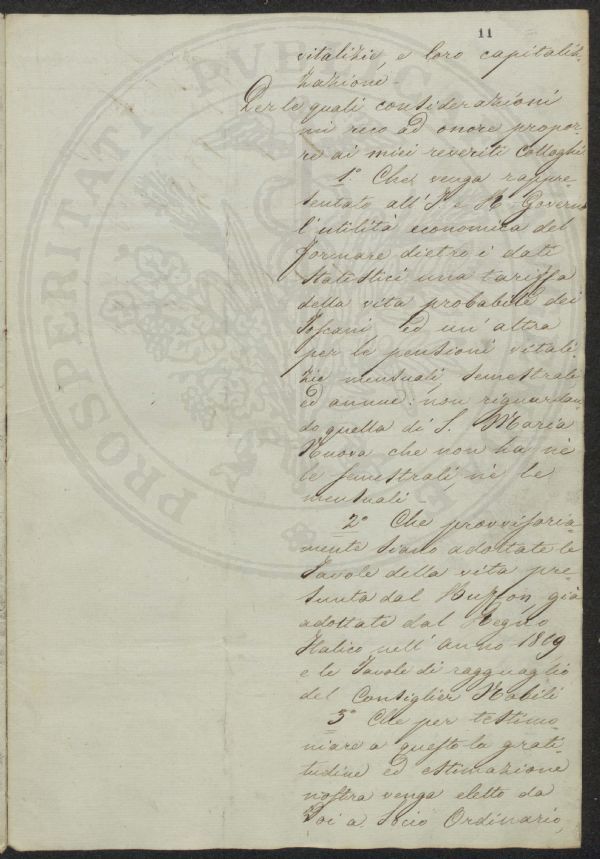 11
vitalizie, e loro capitaliz-
zazione.
Per le quali considerazioni
mi reco ad onore propor-
re ai miei reveriti Colleghi
1° Che venga rappre
sentato all' I. e R. Governo
l'utilità economica del
formare dietro i dati
statistici una tariffa
della vita probabile dei
Toscani ed un'altra
per le pensioni vitali
zie mensuali semestrali
ed annue: non riguardan
do quella di S. Maria
Nuova che non ha nè
le semestrali nè le
mensuali
2° Che provvisoria-
mente siano adottate le
Tavole della vita pre-
sunta dal Buffon già
adottate dal Regno
Italico nell' anno 1809
e le Tavole di ragguaglio
del Consiglier Nobili
3° Che per testimo-
niare a questo la grati-
tudine ed estimazione
nostra venga eletto da
Voi a Socio Ordinario,
PROSPERITATI PVBLICAE